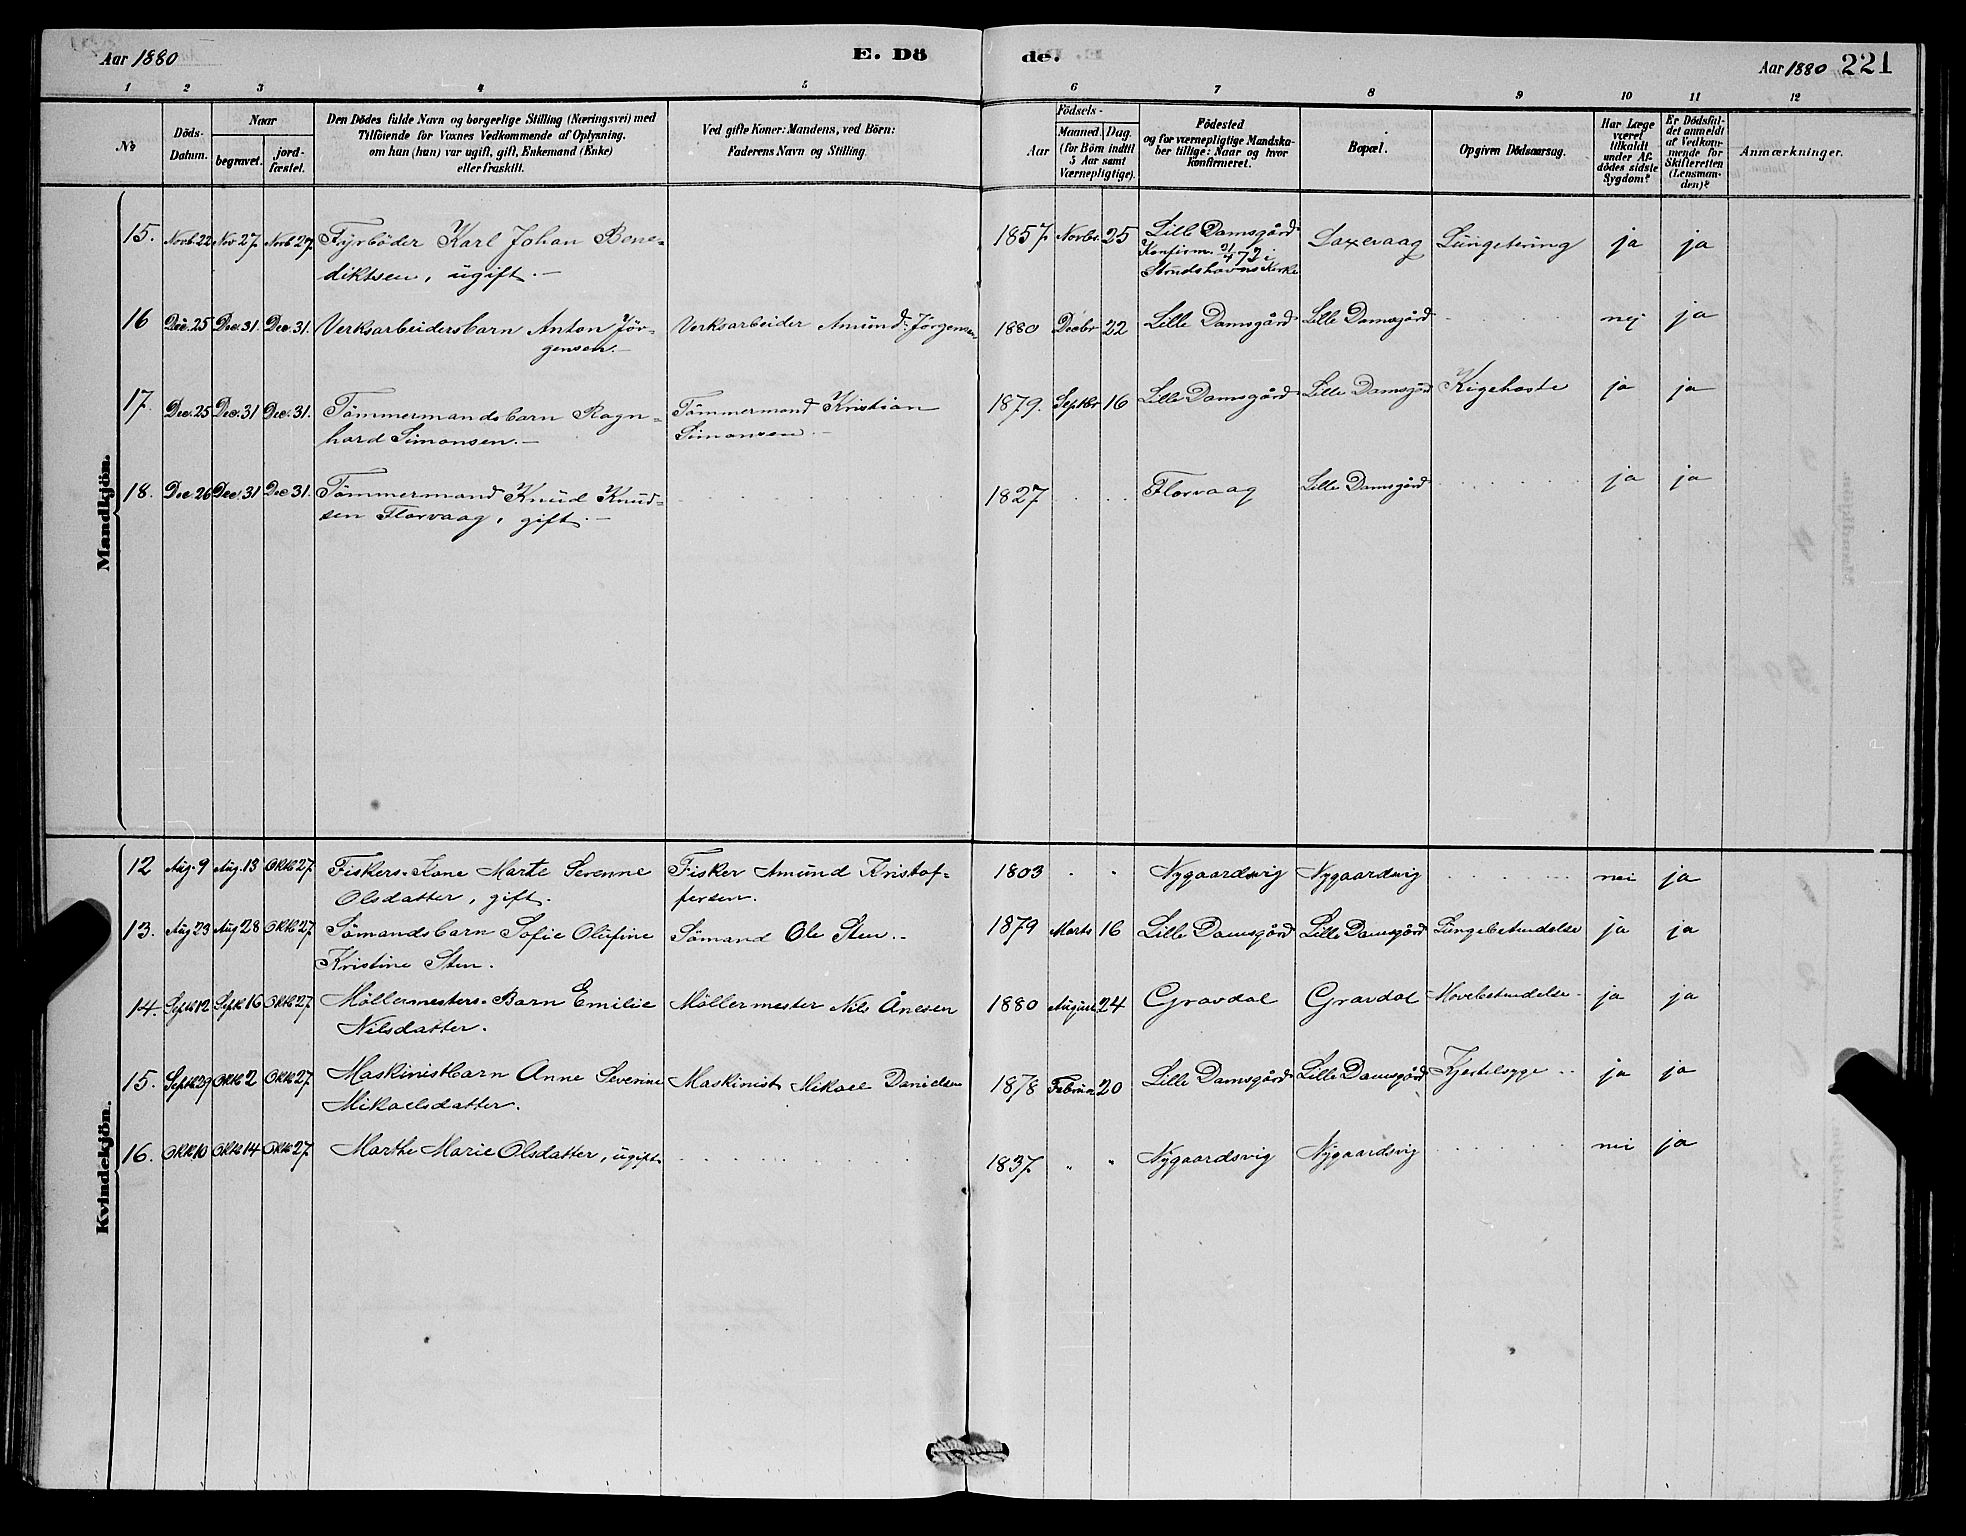 Aar 1880
E. Dö
de.
Aar 1880
221
1 2 3 4 5 6 7 8 9 10 11 12
No
Döds-
Datum.
Naar
begravet.
jord-
fæstet.
Den Dödes fulde Navn og borgerlige Stilling (Næringsvei) med
Tilföiende for Voxnes Vedkommende af Oplysning,
om han (hun) var ugift, gift, Enkemand (Enke)
eller fraskilt.
Ved gifte Koner: Mandens, ved Börn:
Faderens Navn og Stilling
Födsels-
Aar
Maaned. Dag.
(for Börn indtil
5 Aar samt
Værnepligtige).
Födested
og for værnepligtige Mandska-
ber tillige: Naar og hvor
konfirmeret.
Bopæl.
Opgiven Dödsaarsag.
Har Læge
været
tilkaldt
under Af-
dödes sidste
Sygdom?
Er Dödsfal-
det anmeldt
af Vedkom-
mende for
Skifteretten
(Lensman-
den)?
Anmærkninger.
Mandkjön.
15. Novb. 22 Nov 27. Novb 27. Fyrböder Karl Johan Bene- 1857 Novbr. 25 Lille Damsgård Laxevaag Lungetering ja ja
diktsen, ugift. — Konfirm. i
Kirke
16 Dec. 25 Dec. 31. Dec. 31. Verksarbeidersbarn Anton Jör- Verksarbeider Amund Jörgensen 1880 Decbr 22 Lille Damsgård Lille Damsgård nej ja
gensen. —
17. Dec. 25 Dec. 31 Dec. 31. Tömmermandsbarn Ragn- Tömmermand Kristian 1879. Septbr 16 Lille Damsgård Lille Damsgård Kigehoste ja ja
hard Simonsen. — Simonsen —
18. Dec 26 Dec. 31 Dec 31. Tömmermand Knud Knud- 1827 Florvaag Lille Damsgård ja ja
sen Florvaag, gift. —
Kvindekjön.
12 Aug. 9 Aug. 13 Oktb 27. Fiskers-Kone Marte Severine Fisker Amund Kristof- 1803 " " Nygaardsvig Nygaardsvig nei ja
Olsdatter, gift. fersen.
13. Aug 23 Aug 28 Oktb 27. Sömandsbarn Sofie Olufine Sömand Ole Sten.. 1879 Marts 16 Lille Damsgård Lille Damsgård Lungebetændelse ja ja
Kristine Sten.
14. Septb 12 Septb 16 Oktb 27. Möllermesters-Barn Emilie Möllermester Nils Ånesen 1880 August 24 Gravdal Gravdal ja ja
Nilsdatter.
15. Septb 29 Oktb 2 Oktb 27. Maskinistbarn Anne Severine Maskinist Mikael Danielsen 1878 Februar 20 Lille Damsgård Lille Damsgård Kjertelsyge .. ja ja
Mikaelsdatter.
16. Oktb 10 Oktb 14 Oktb 27. Marthe Marie Olsdatter, ugift 1837. " " Nygaardsvig Nygaardsvig nei ja